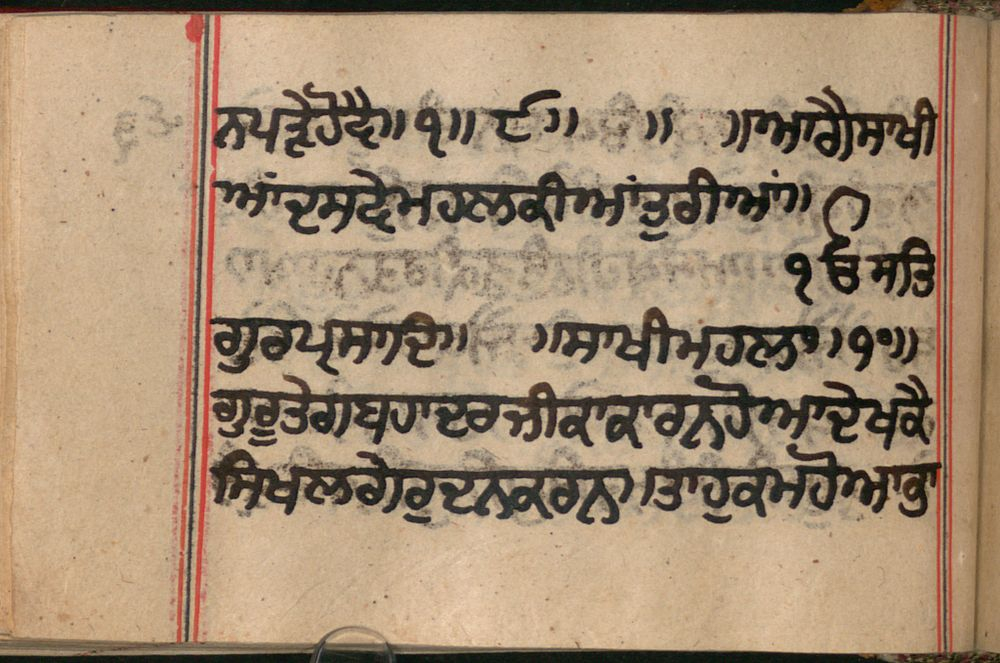 ਨਪੜੇਹੋਵੈ॥੧॥ ੯॥ ॥ ॥ਆਗੈਸਾਖੀ
ਆਂਦਸਵੇਮਹਲਕੀਆਂਤੁਰੀਆਂ॥
੧ਓੁ ਸਤਿ
ਗੁਰਪ੍ਰਸਾਦਿ॥ ॥ਸਾਖੀਮਹਲਾ੧੦॥
ਗੁਰੂਤੇਗਬਹਾਦਰਜੀਕਾਕਾਰਨਹੋਆਦੇਖਕੈ
ਸਿਖਲਗੇਰੁਦਨਕਰਿਨ।ਤਾਹੁਕਮਹੋਆਭਾ